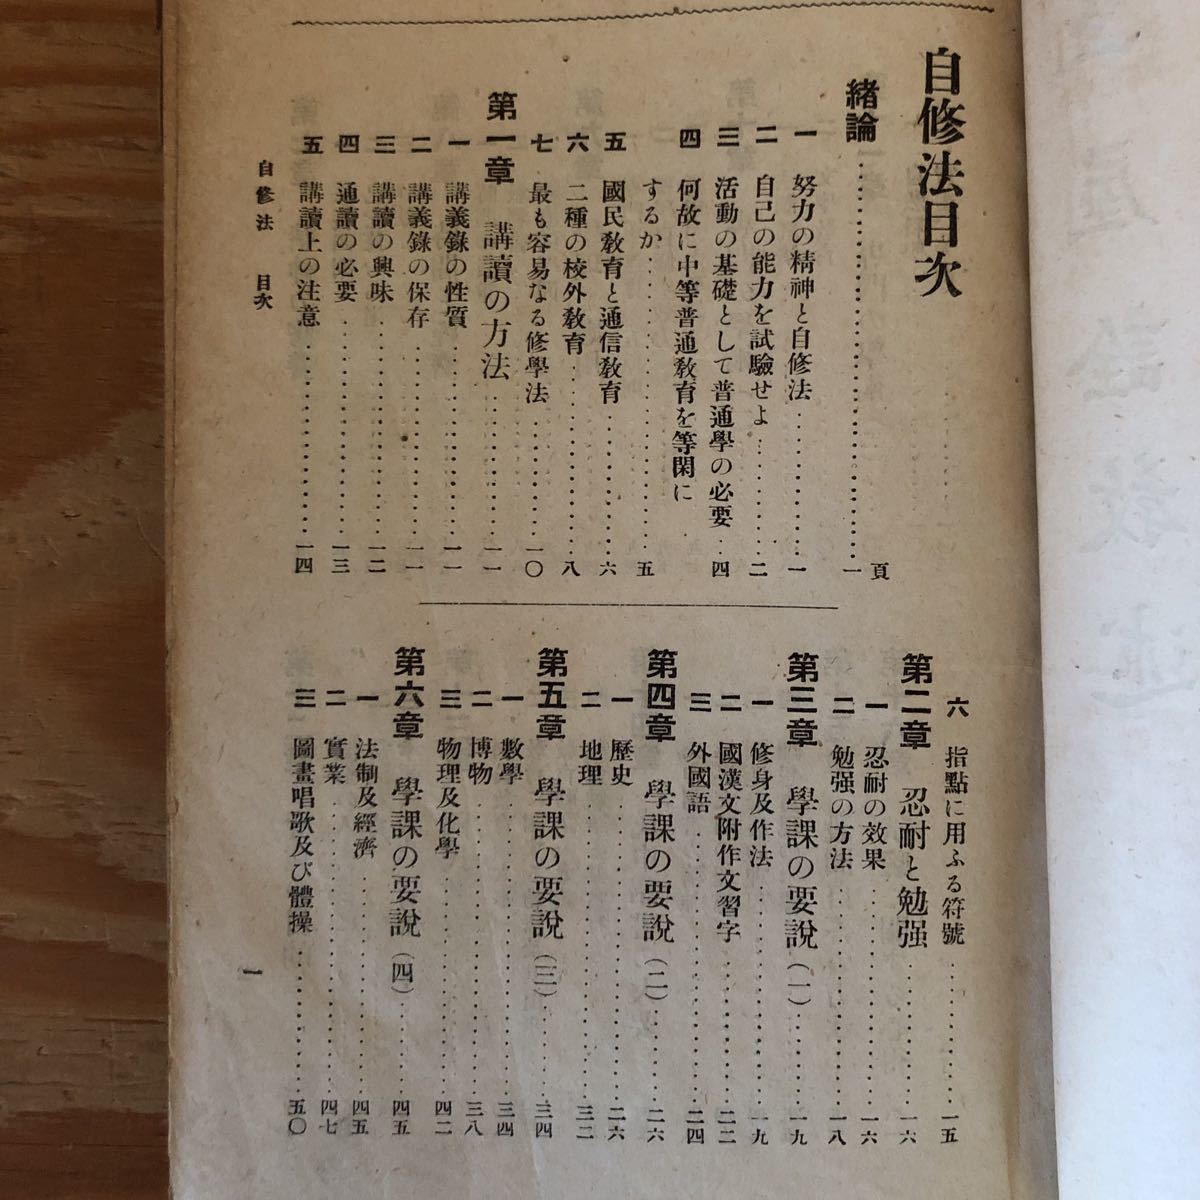 自修法目次
頁
緒論………一
一 努力の精神と自修法………一
二 自己の能力を試驗せよ………二
三 活動の基礎として普通學の必要…四
四 何故に中等普通敎育を等閑に
するか………五
五 國民敎育と通信敎育………六
六 二種の校外敎育………八
七 最も容易なる修學法………一〇
第一章 講讀の方法………一一
一 講義錄の性質………一一
二 講義錄の保存………一一
三 講讀の興味………一二
四 通讀の必要………一三
五 講讀上の注意………一四
六 指點に用ふる符號………一五
第二章 忍耐と勉强………一六
一 忍耐の效果………一六
二 勉强の方法………一八
第三章 學課の要說(一)………一九
一 修身及作法………一九
二 國漢文附作文習字………二二
三 外國語………二四
第四章 學課の要說(二)………二六
一 歷史………二六
二 地理………三二
第五章 學課の要說(三)………三四
一 數學………三四
二 博物………三八
三 物理及化學………四二
第六章 學課の要說(四)………四五
一 法制及經濟………四五
二 實業………四七
三 圖畫唱歌及び體操………五〇
自修法 目次
一